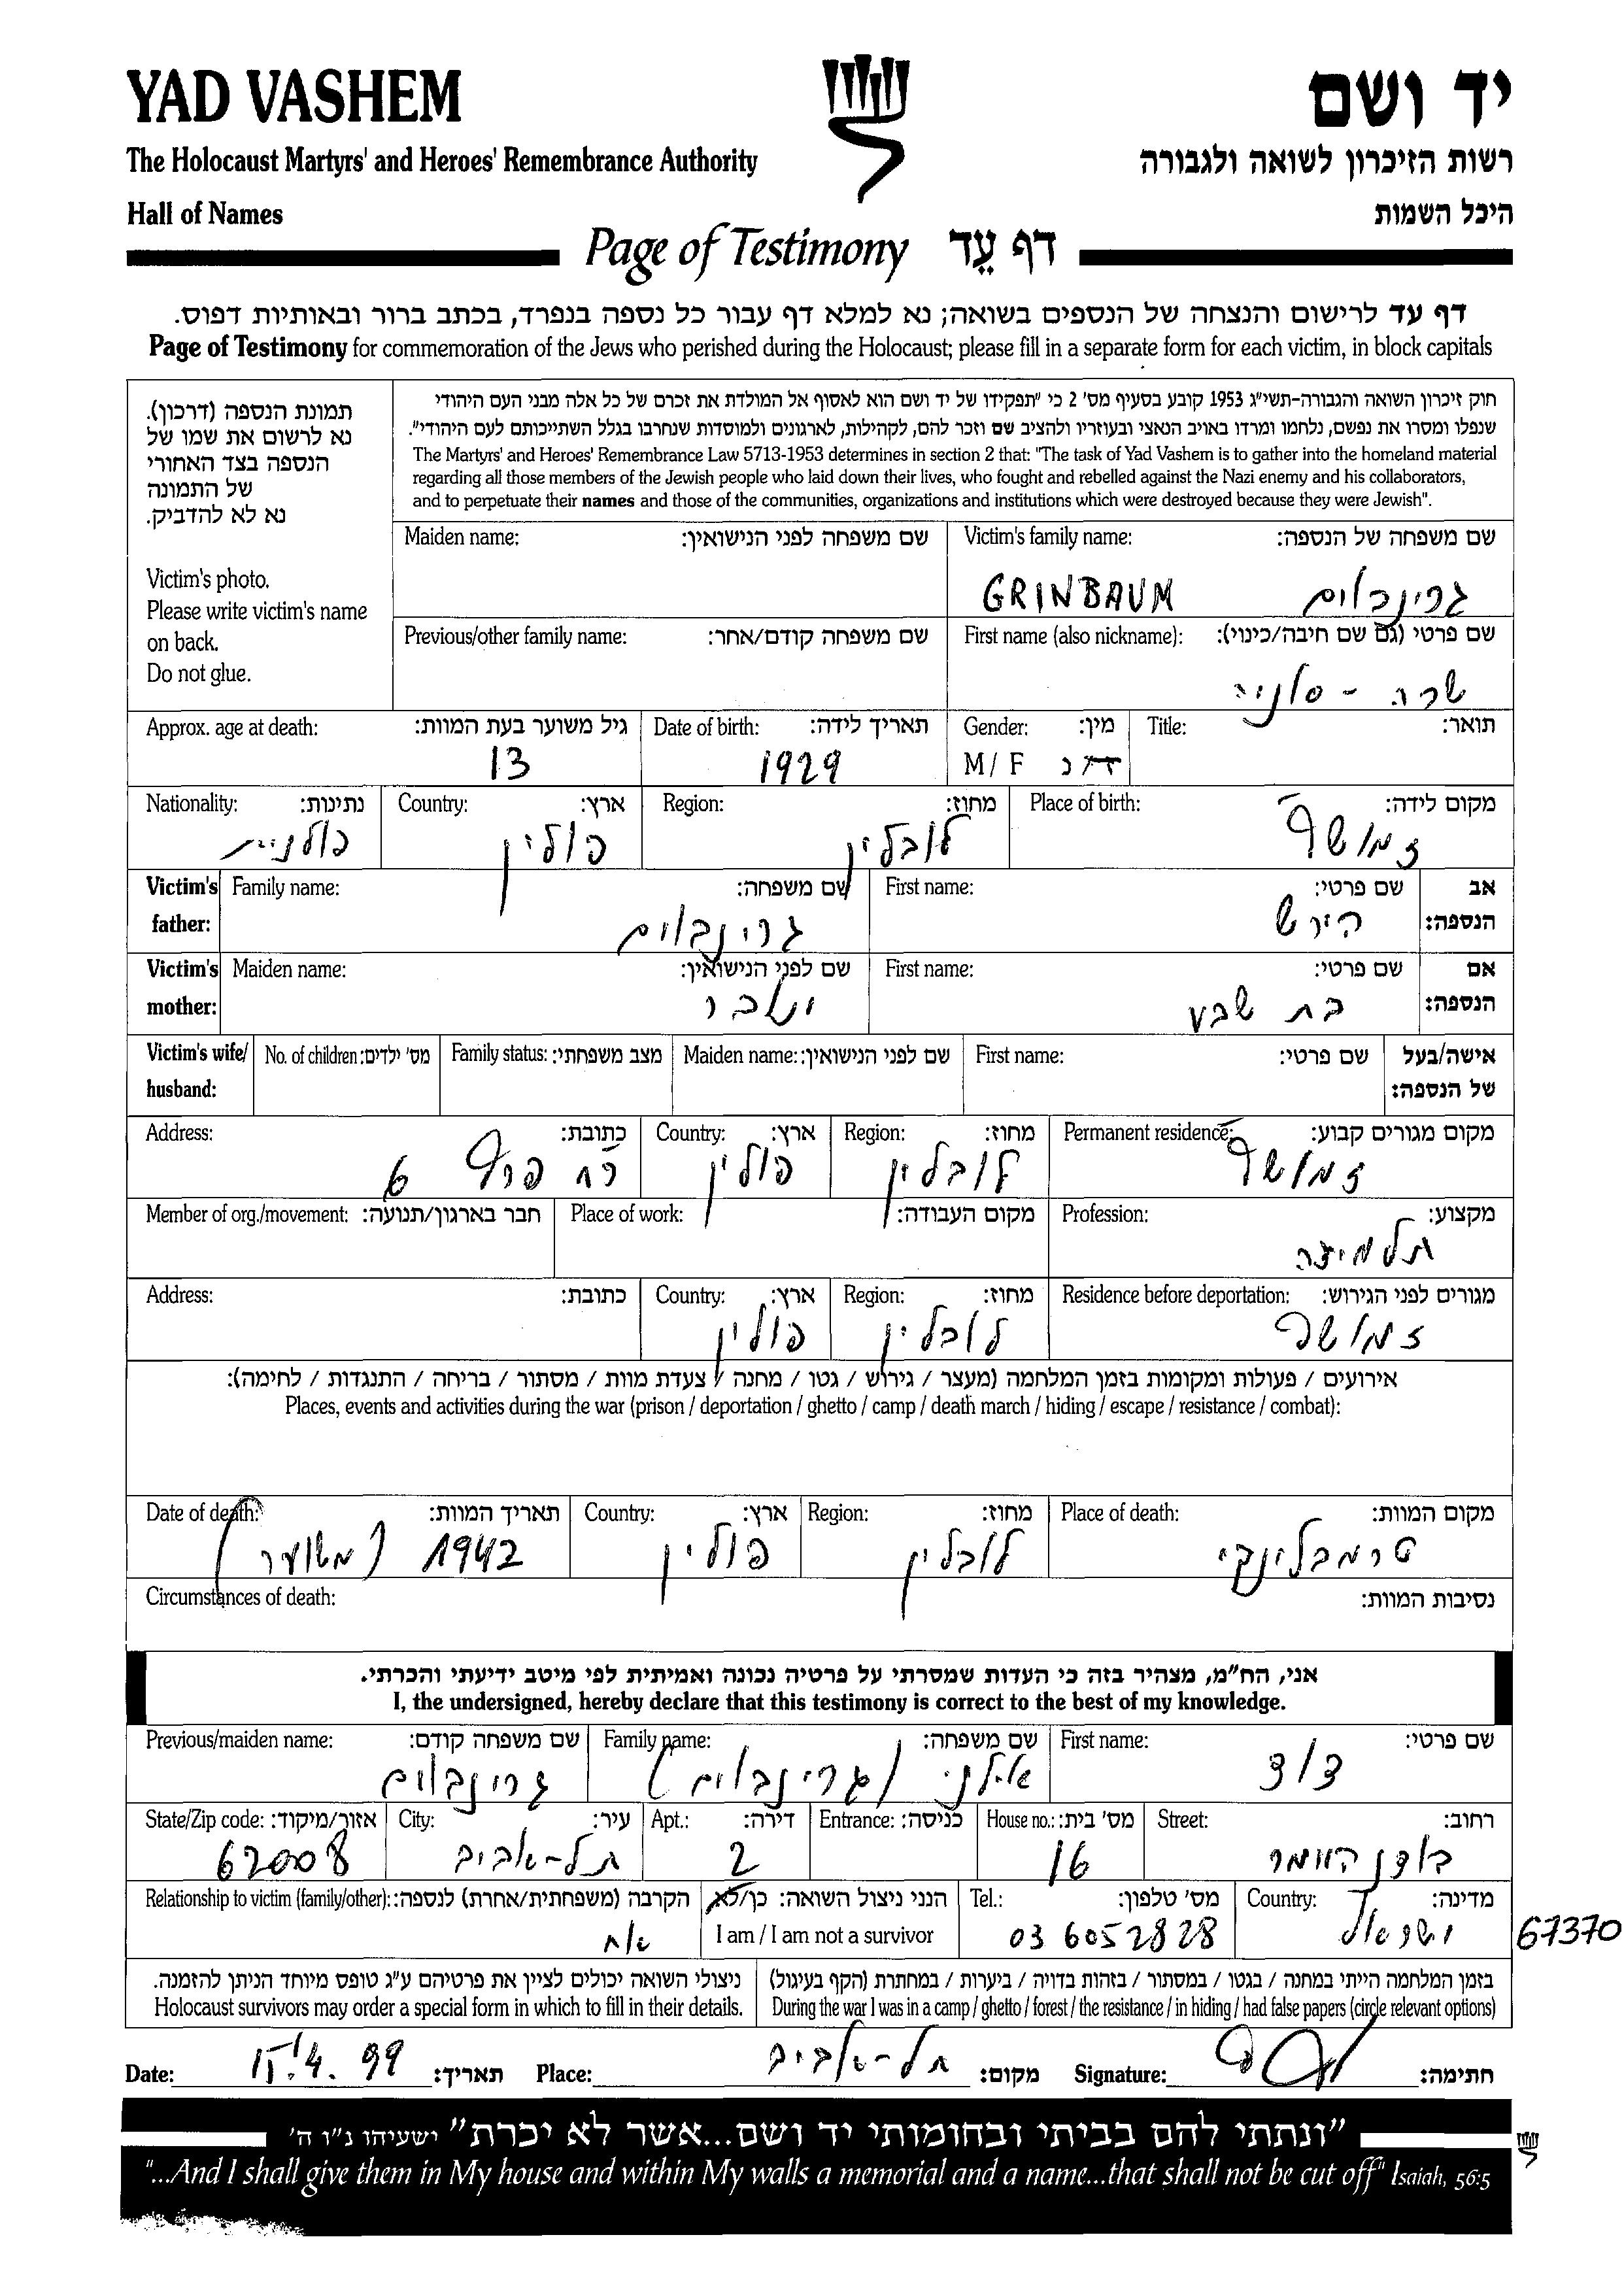 YAD VASHEM
יד ושם
The Holocaust Martyrs' and Heroes' Remembrance Authority
רשות הזיכרון לשואה ולגבורה
Hall of Names
היכל השמות
Page of Testimony דף עֵד
דף עד לרישום והנצחה של הנספים בשואה; נא למלא דף עבור כל נספה בנפרד, בכתב ברור ובאותיות דפוס.
Page of Testimony for commemoration of the Jews who perished during the Holocaust; please fill in a separate form for each victim, in block capitals
תמונת הנספה (דרכון).
נא לרשום את שמו של
הנספה בצד האחורי
של התמונה
נא לא להדביק.
Victim's photo.
Please write victim's name
on back.
Do not glue.
חוק זיכרון השואה והגבורה-תשי"ג 1953 קובע בסעיף מס' 2 כי "תפקידו של יד ושם הוא לאסוף אל המולדת את זכרם של כל אלה מבני העם היהודי
שנפלו ומסרו את נפשם, נלחמו ומרדו באויב הנאצי ובעוזריו ולהציב שם וזכר להם, לקהילות, לארגונים ולמוסדות שנחרבו בגלל השתייכותם לעם היהודי".
The Martyrs' and Heroes' Remembrance Law 5713-1953 determines in section 2 that: "The task of Yad Vashem is to gather into the homeland material
regarding all those members of the Jewish people who laid down their lives, who fought and rebelled against the Nazi enemy and his collaborators,
and to perpetuate their names and those of the communities, organizations and institutions which were destroyed because they were Jewish".
Maiden name: שם משפחה לפני הנישואין: Victim's family name: שם משפחה של הנספה:
GRINBAUM גרינבוים
Previous/other family name: שם משפחה קודם/אחר: First name (also nickname): שם פרטי (גם שם חיבה/כינוי):
שרה -
Approx. age at death: גיל משוער בעת המוות: Date of birth: תאריך לידה: Gender: מין: Title: תואר:
13 1929 M / F ז/נ
Nationality: נתינות: Country: ארץ: Region: מחוז: Place of birth: מקום לידה:
פולנית פולין לובלין זמושץ'
Victim's father: Family name: שם משפחה: First name: שם פרטי: אב הנספה:
גרינבוים הירש
Victim's mother: Maiden name: שם לפני הנישואין: First name: שם פרטי: אם הנספה:
בת שבע
Victim's wife/ husband: No. of children: מס' ילדים: Family status: מצב משפחתי: Maiden name: שם לפני הנישואין: First name: שם פרטי: אישה/בעל של הנספה:
Address: כתובת: Country: ארץ: Region: מחוז: Permanent residence: מקום מגורים קבוע:
6 פולין לובלין זמושץ'
Member of org./movement: חבר בארגון/תנועה: Place of work: מקום העבודה: Profession: מקצוע:
תלמידה
Address: כתובת: Country: ארץ: Region: מחוז: Residence before deportation: מגורים לפני הגירוש:
פולין לובלין זמושץ'
אירועים / פעולות ומקומות בזמן המלחמה (מעצר / גירוש / גטו / מחנה / צעדת מוות / מסתור / בריחה / התנגדות / לחימה):
Places, events and activities during the war (prison / deportation / ghetto / camp / death march / hiding / escape / resistance / combat):
Date of death: תאריך המוות: Country: ארץ: Region: מחוז: Place of death: מקום המוות:
1942 (משוער) פולין לובלין טרמבלינקי
Circumstances of death: נסיבות המוות:
אני, הח"מ, מצהיר בזה כי העדות שמסרתי על פרטיה נכונה ואמיתית לפי מיטב ידיעתי והכרתי.
I, the undersigned, hereby declare that this testimony is correct to the best of my knowledge.
Previous/maiden name: שם משפחה קודם: Family name: שם משפחה: First name: שם פרטי:
גרינבוים אילני (גרינבוים) דוד
State/Zip code: אזור/מיקוד: City: עיר: Apt.: דירה: Entrance: כניסה: House no.: מס' בית: Street: רחוב:
62008 תל-אביב 2 16
Relationship to victim (family/other): הקרבה (משפחתית/אחרת) לנספה: הנני ניצול השואה: כן/לא Tel.: מס' טלפון: Country: מדינה:
אח I am / I am not a survivor 03 6052828 ישראל 67370
ניצולי השואה יכולים לציין את פרטיהם ע"ג טופס מיוחד הניתן להזמנה.
Holocaust survivors may order a special form in which to fill in their details.
בזמן המלחמה הייתי במחנה / בגטו / במסתור / בזהות בדויה / ביערות / במחתרת (הקף בעיגול)
During the war I was in a camp / ghetto / forest / the resistance / in hiding / had false papers (circle relevant options)
Date: 15.4.99 תאריך: Place: תל-אביב מקום: Signature: חתימה:
"ונתתי להם בביתי ובחומותי יד ושם...אשר לא יכרת" ישעיהו נ"ו ה'
"...And I shall give them in My house and within My walls a memorial and a name...that shall not be cut off" Isaiah, 56:5